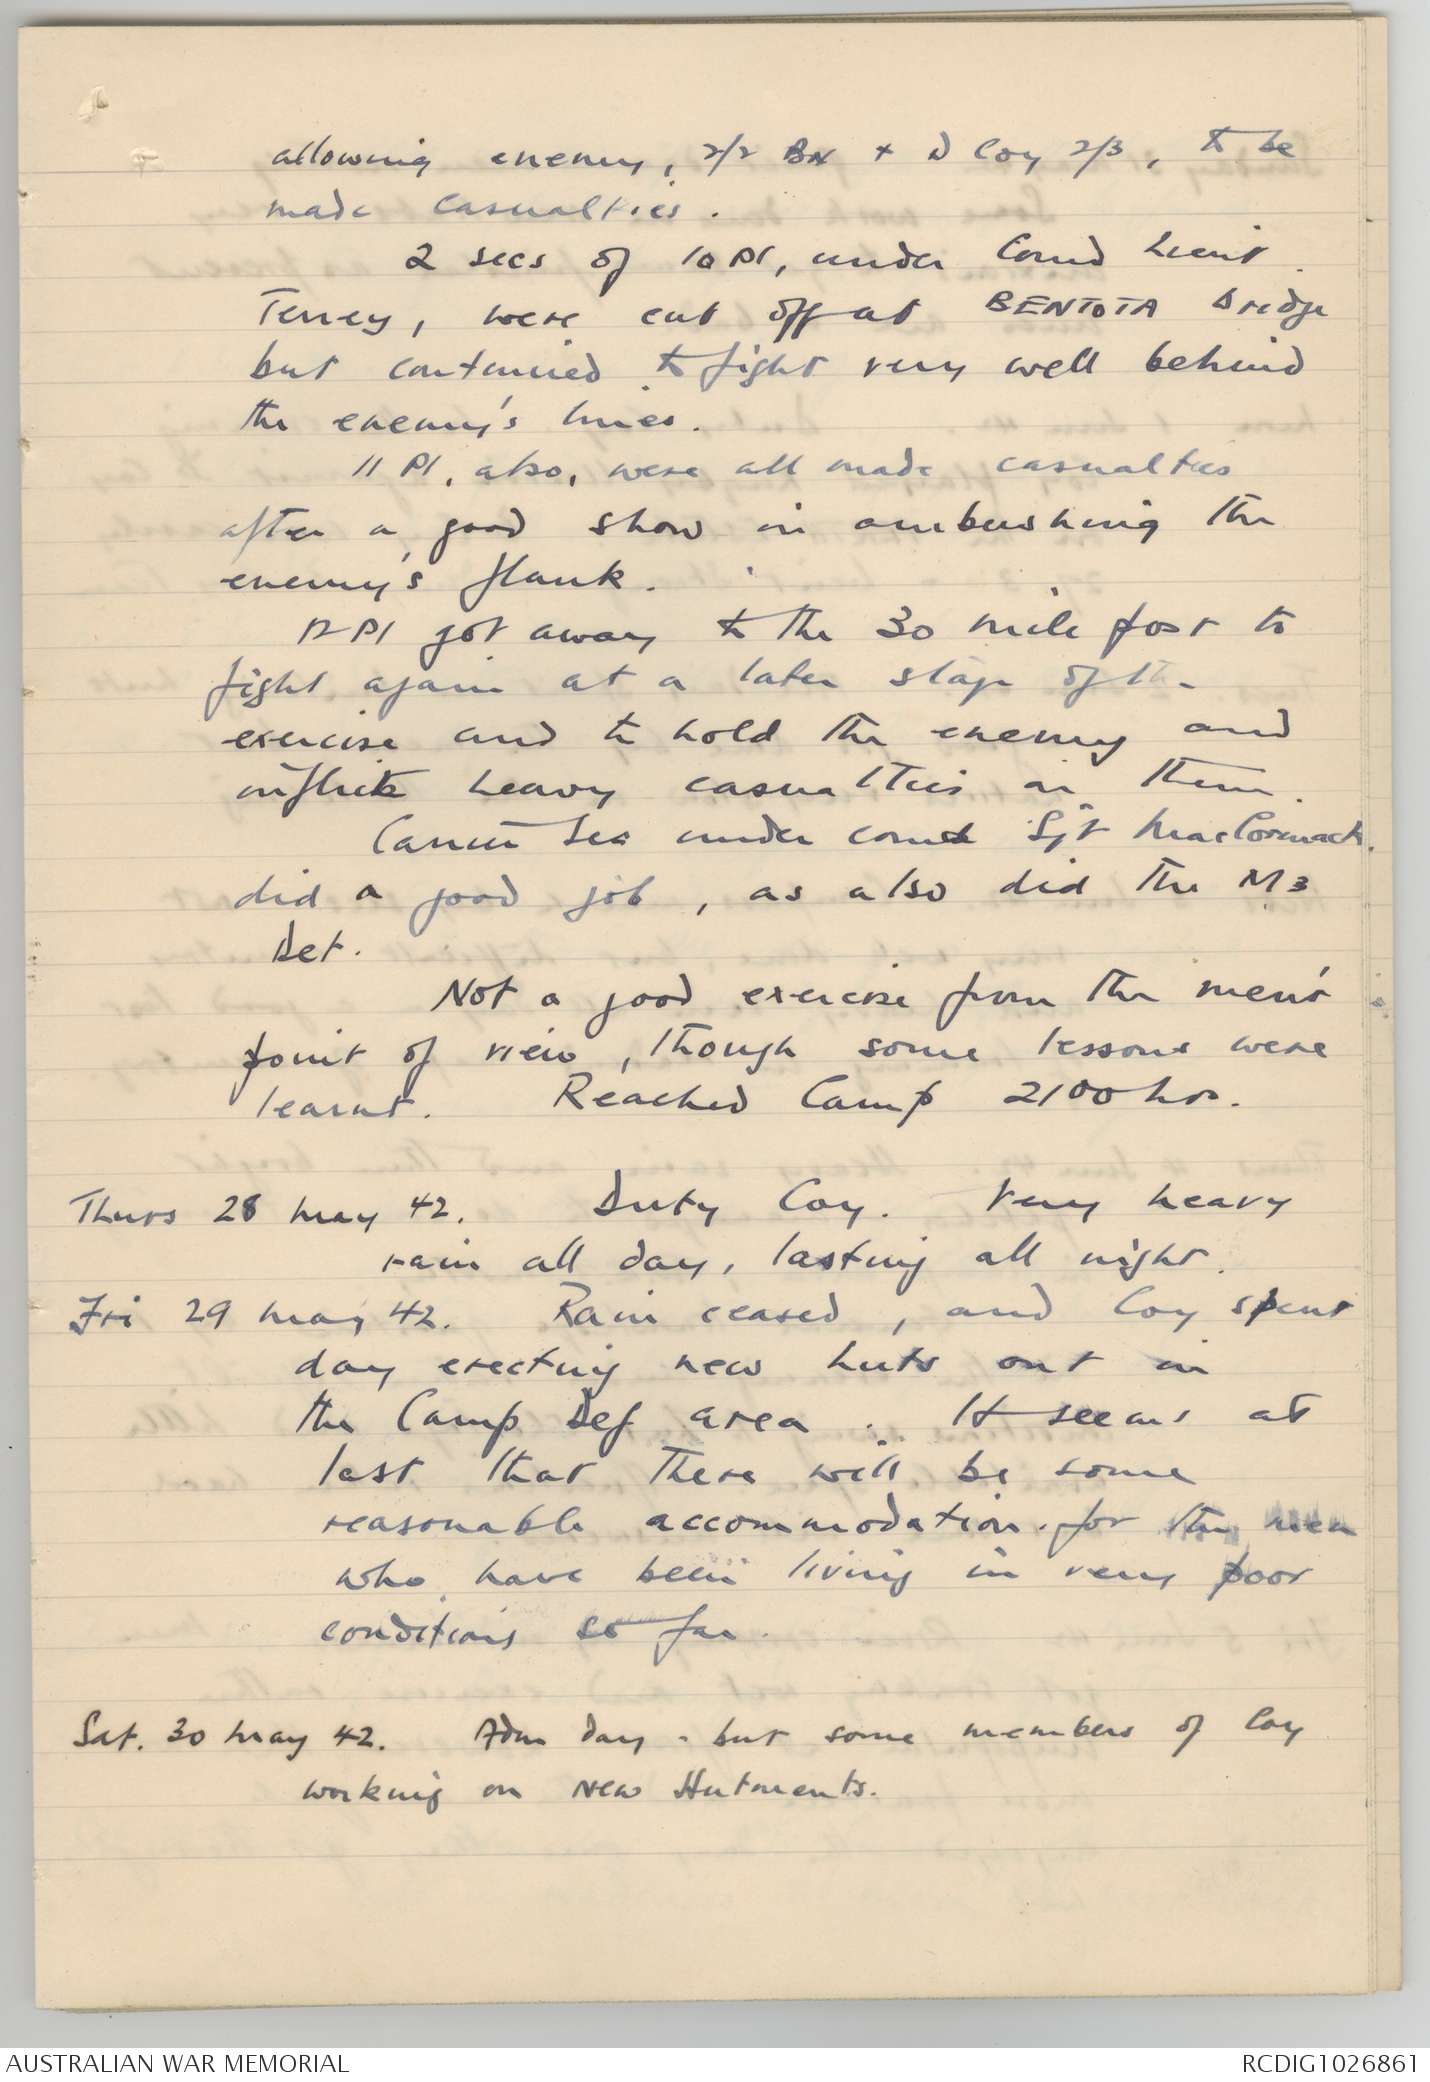 allowing enemy, 2/2 BN + D Coy 2/3, to be
made casualties.
2 secs of 10 Pl, under Comd Lieut.
were cut off at BENTOTA Bridge
but continued to fight very well behind
the enemy's lines.
11 Pl, also, were all made casualties
after a good show in ambushing the
enemy's flank.
12 Pl got away to the 30 mile post to
fight again at a later stage of the
exercise and to hold the enemy and
inflict heavy casualties on them.
Carrier Sec under comd Sgt MacCormack.
did a good job, as also did the M3
Det.
Not a good exercise from the men's
point of view, though some lessons were
learnt. Reached Camp 2100 hrs.
Thurs 28 May 42. Duty Coy. Very heavy
rain all day, lasting all night.
Fri 29 May 42. Rain ceased, and Coy spent
day erecting new huts out in
the Camp Def area. It seems at
last that there will be some
reasonable accommodation for the men
who have been living in very poor
conditions so far.
Sat. 30 May 42. Adm day - but some members of Coy
working on New Hutments.
AUSTRALIAN WAR MEMORIAL
RCDIG1026861